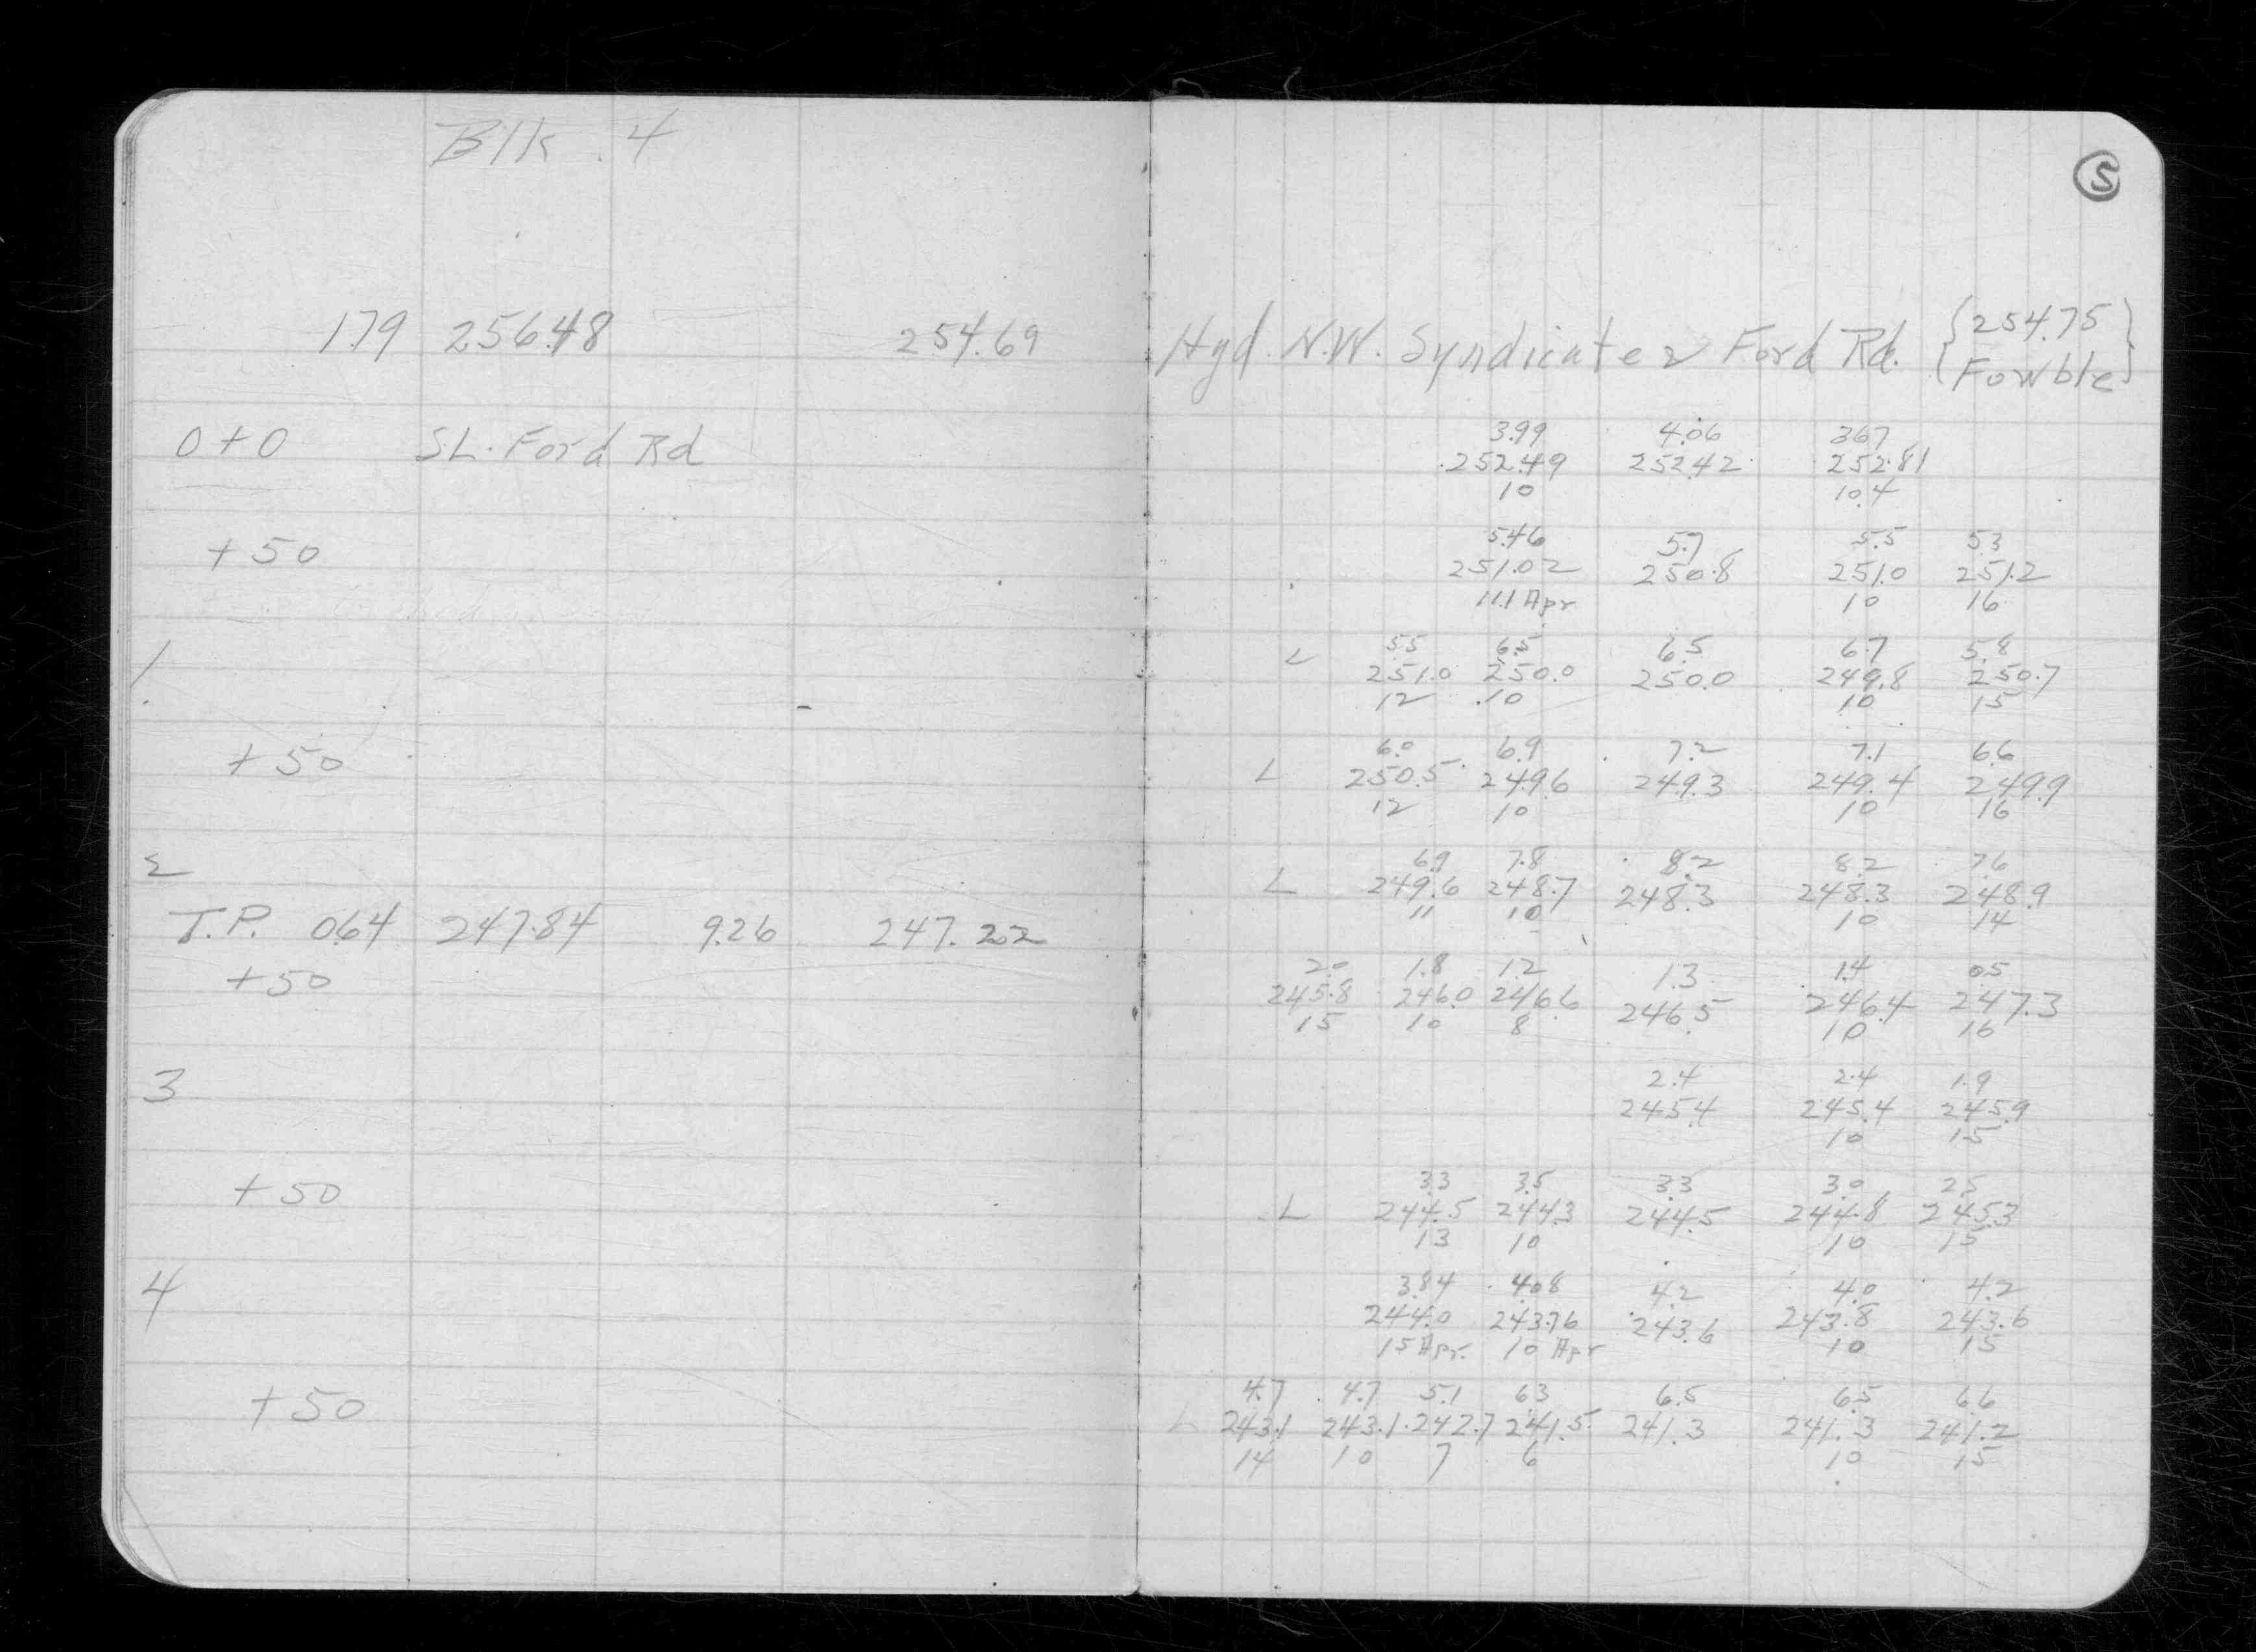 Blk. 4
5
1.79 256.48 254.69 Hyd. N.W. Syndicate & Ford Rd. {254.75
Fowble}
3.99 4.06 3.67
0+0 S.L. Ford Rd 252.49 252.42 252.81
10 10.4
5.46 5.7 5.5 5.3
+50 251.02 250.8 251.0 251.2
11.1 Apr 10 16
5.5 6.5 6.5 6.7 5.8
1 L 251.0 250.0 250.0 249.8 250.7
12 10 10 15
6.0 6.9 7.2 7.1 6.6
+50 L 250.5 249.6 249.3 249.4 249.9
12 10 10 16
6.9 7.8 8.2 8.2 7.6
2 L 249.6 248.7 248.3 248.3 248.9
11 10 10 14
T.P. 0.64 247.84 9.26 247.22
2.0 1.8 1.2 1.3 1.4 0.5
+50 245.8 246.0 246.6 246.5 246.4 247.3
15 10 8 10 16
2.4 2.4 1.9
3 245.4 245.4 245.9
10 15
3.3 3.5 3.3 3.0 2.5
+50 L 244.5 244.3 244.5 244.8 245.3
13 10 10 15
3.84 4.08 4.2 4.0 4.2
4 244.0 243.76 243.6 243.8 243.6
15 Apr. 10 Apr 10 15
4.7 4.7 5.1 6.3 6.5 6.5 6.6
+50 L 243.1 243.1 242.7 241.5 241.3 241.3 241.2
14 10 7 6 10 15